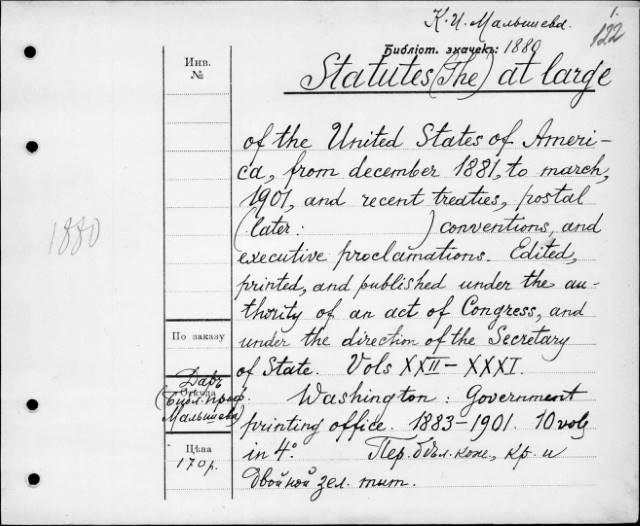 К. И. Малышева.
1.
122
Библіот. значекъ: 1880
Statutes (The) at large
Инв.
№
of the United States of Ameri-
ca, from december 1881, to march,
1901, and recent treaties, postal
(later: ) conventions, and
executive proclamations. Edited,
printed, and published under the au-
thority of an act of Congress, and
under the direction of the Secretary
of State. Vols XXII-XXXI.
Washington: Government
printing office. 1883-1901. 10 vols
in 4º. Пер. бѣл. кож., кр. и
двойной зел. тит.
1880
По заказу
Даръ
Откуда
(Библ. проф.
Малышева)
Цѣна
170 р.